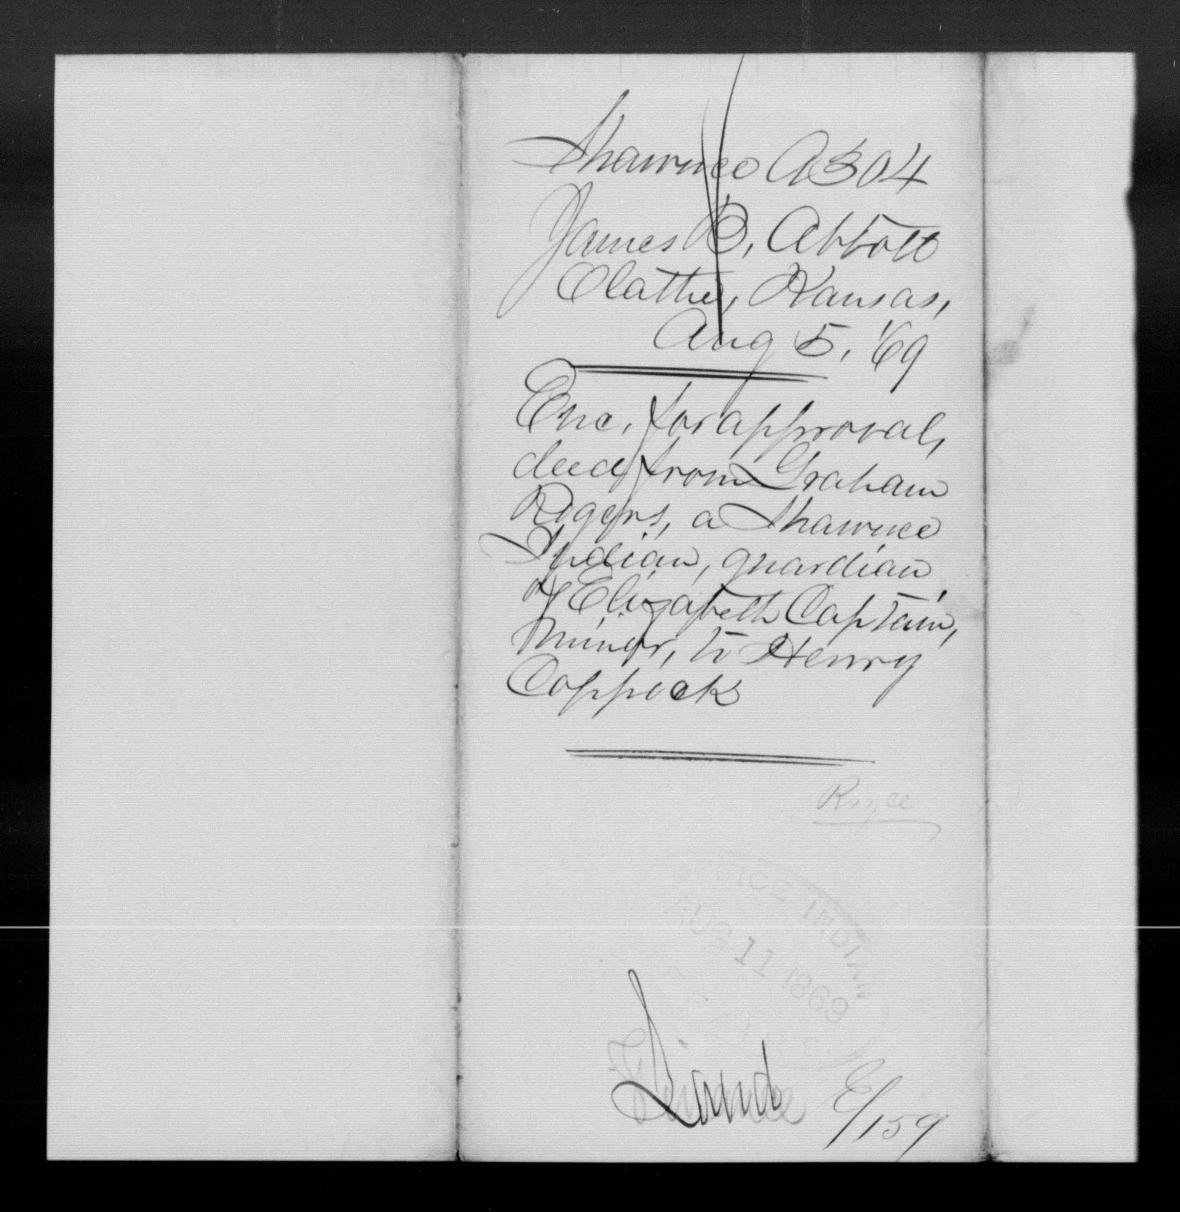 Shawnee A304
James B. Abbott
Olathe, Kansas,
Aug 5, '69
Enc. for approval,
deed from Graham
Rogers, a Shawnee
Indian, guardian
of Elizabeth Captain,
minor, to Henry
Coppock
Royce
OFFICE INDIAN
AUG 11 1869
Land
E/159